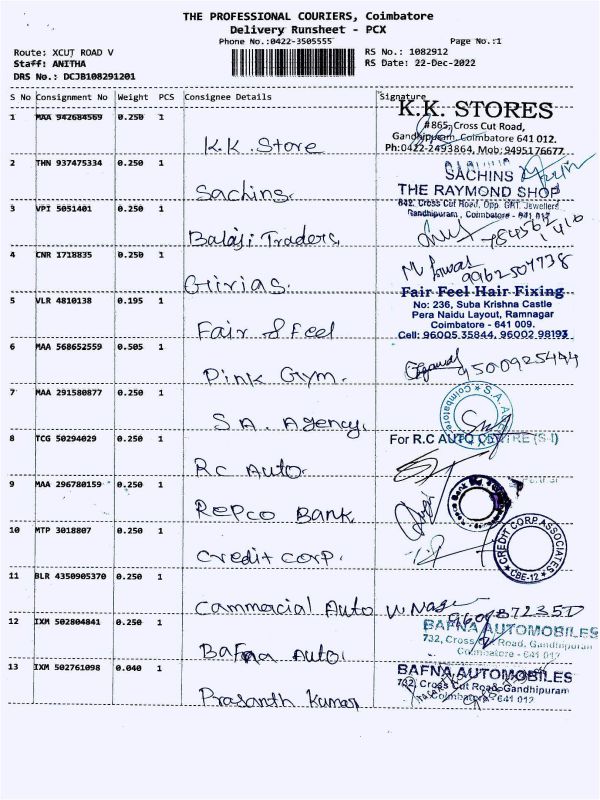 THE PROFESSIONAL COURIERS, Coimbatore
Delivery Runsheet - PCX
Phone No.:0422-3505555 Page No.:1
Route: XCUT ROAD V RS No.: 1082912
Staff: ANITHA RS Date: 22-Dec-2022
DRS No.: DCJB108291201
S No Consignment No Weight PCS Consignee Details Signature
1 MAA 942684569 0.250 1
K.K. Store
K.K. STORES
#865, Cross Cut Road,
Gandhipuram, Coimbatore 641 012.
Ph:0422-2493864, Mob: 9495176677
2 THN 937475334 0.250 1
Sachins.
SACHINS
THE RAYMOND SHOP
642, Cross Cut Road, Opp. GRT. Jewellers
Gandhipuram, Coimbatore - 641 012
3 VPI 5051401 0.250 1
Balaji Traders
4 CNR 1718835 0.250 1
Girias.
9962507738
5 VLR 4810138 0.195 1
Fair & Feel
Fair Feel Hair Fixing
No: 236, Suba Krishna Castle
Pera Naidu Layout, Ramnagar
Coimbatore - 641 009.
Cell: 96005 35844, 96002 98193
6 MAA 568652559 0.505 1
Pink Gym.
9500925444
7 MAA 291580877 0.250 1
S.A. Agency.
8 TCG 50294029 0.250 1
Rc Auto.
For R.C AUTO CENTRE (S.I)
9 MAA 296780159 0.250 1
Repco Bank
10 MTP 3018807 0.250 1
Credit corp.
CREDIT CORP ASSOCIATES
CBE-12
11 BLR 4350905370 0.250 1
Cammacial Auto
12 IXM 502804841 0.250 1
Bafna Auto.
BAFNA AUTOMOBILES
732, Cross Cut Road, Gandhipuram
Coimbatore - 641 012
13 IXM 502761098 0.040 1
Prasanth Kumar
BAFNA AUTOMOBILES
732, Cross Cut Road, Gandhipuram
Coimbatore - 641 012